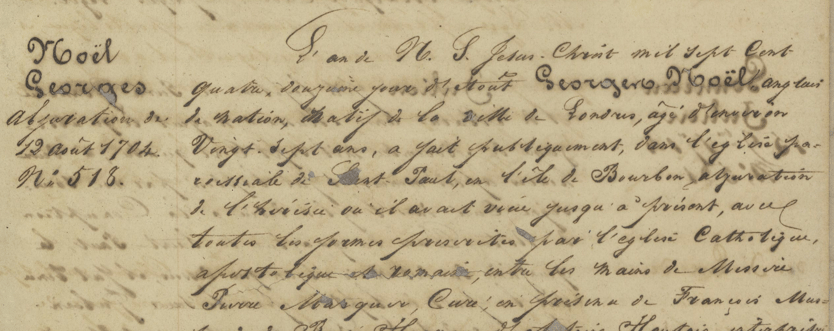 Noël
Georges
abjuration du
12 août 1704.
No. 518.
L'an de N. S. Jesus-Christ mil sept Cent
quatre, douzieme jour d'Août Georges Noël anglais
de nation, natif de la ville de Londres, âgé d'environ
Vingt-sept ans, a fait publiquement, dans l'eglise pa-
roissiale de Saint Paul, en l'île de Bourbon, abjuration
de l'hérésie où il avait vécu jusqu'à présent, avec
toutes les formes prescrites par l'eglise Catholique,
apostolique et romaine, entre les mains de Messire
Pierre Marquer, Curé, en présence de François Mus-